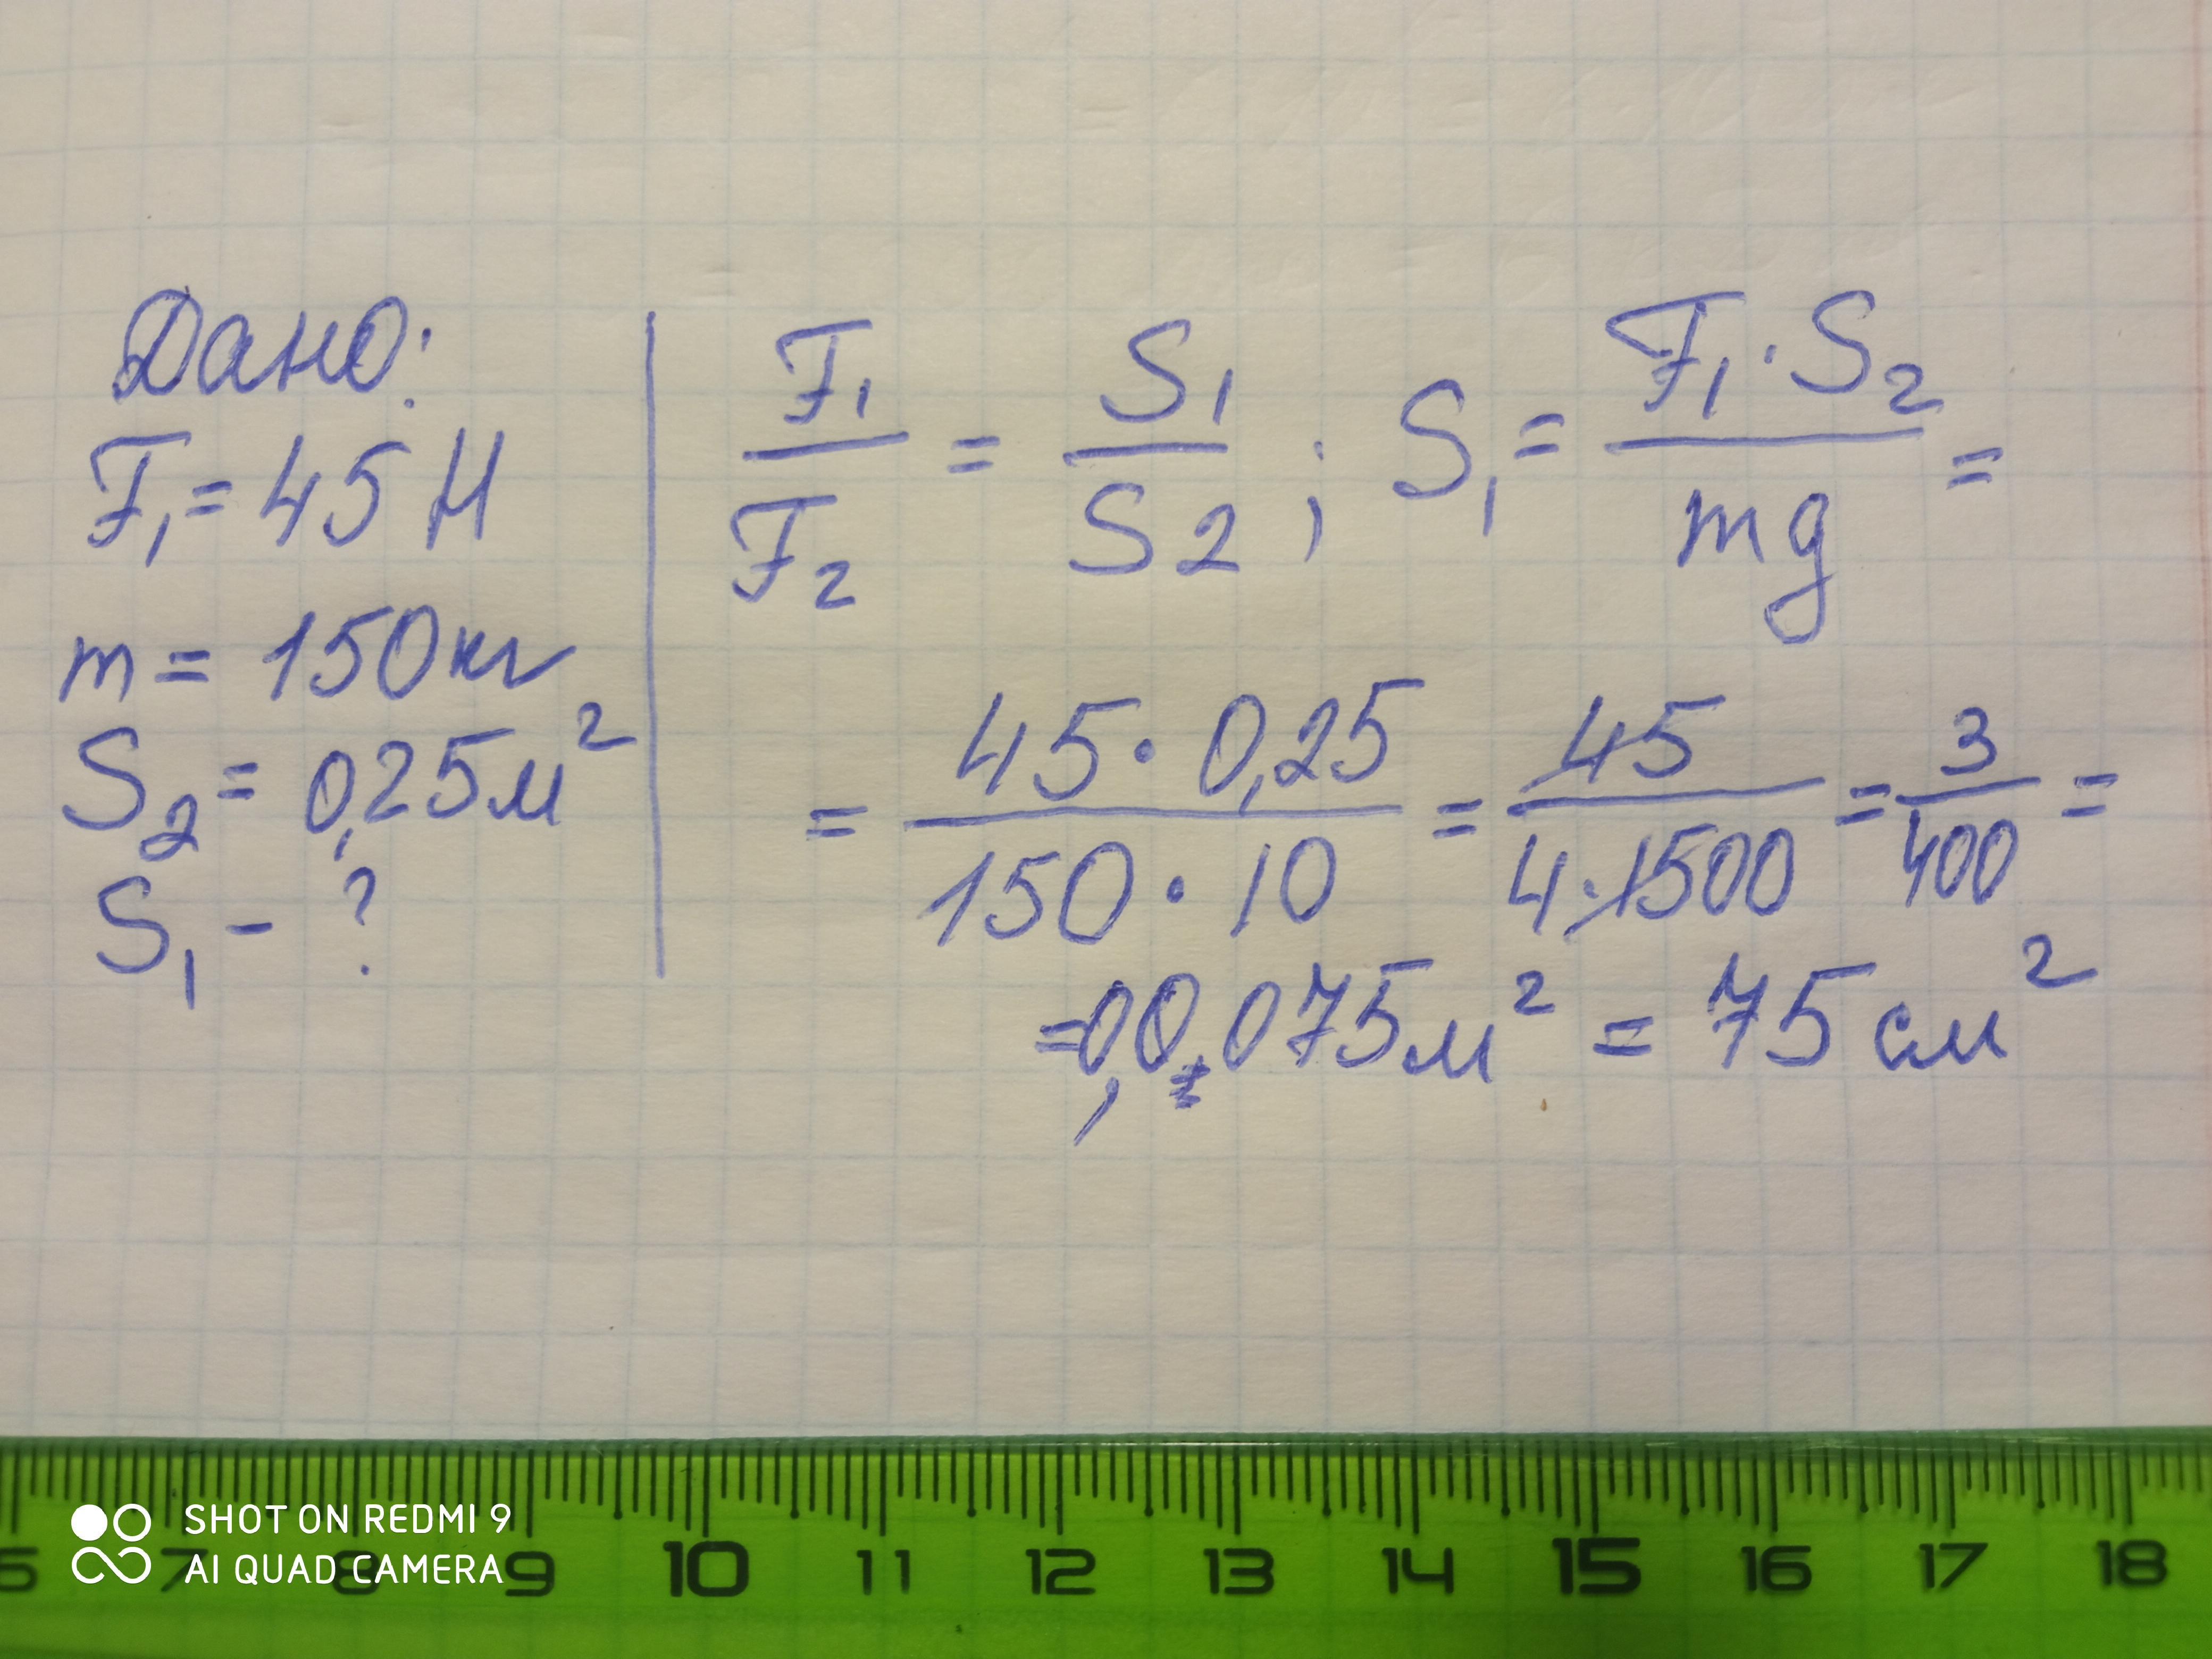 Дано:
F₁ = 45 Н
m = 150 кг
S₂ = 0,25 м²
S₁ - ?
F₁/F₂ = S₁/S2 ; S₁ = F₁·S₂/mg =
= 45·0,25/150·10 = 45/4·1500 = 3/400 =
=0,0075м² = 75 см²
SHOT ON REDMI 9
AI QUAD CAMERA
6 7 8 9 10 11 12 13 14 15 16 17 18